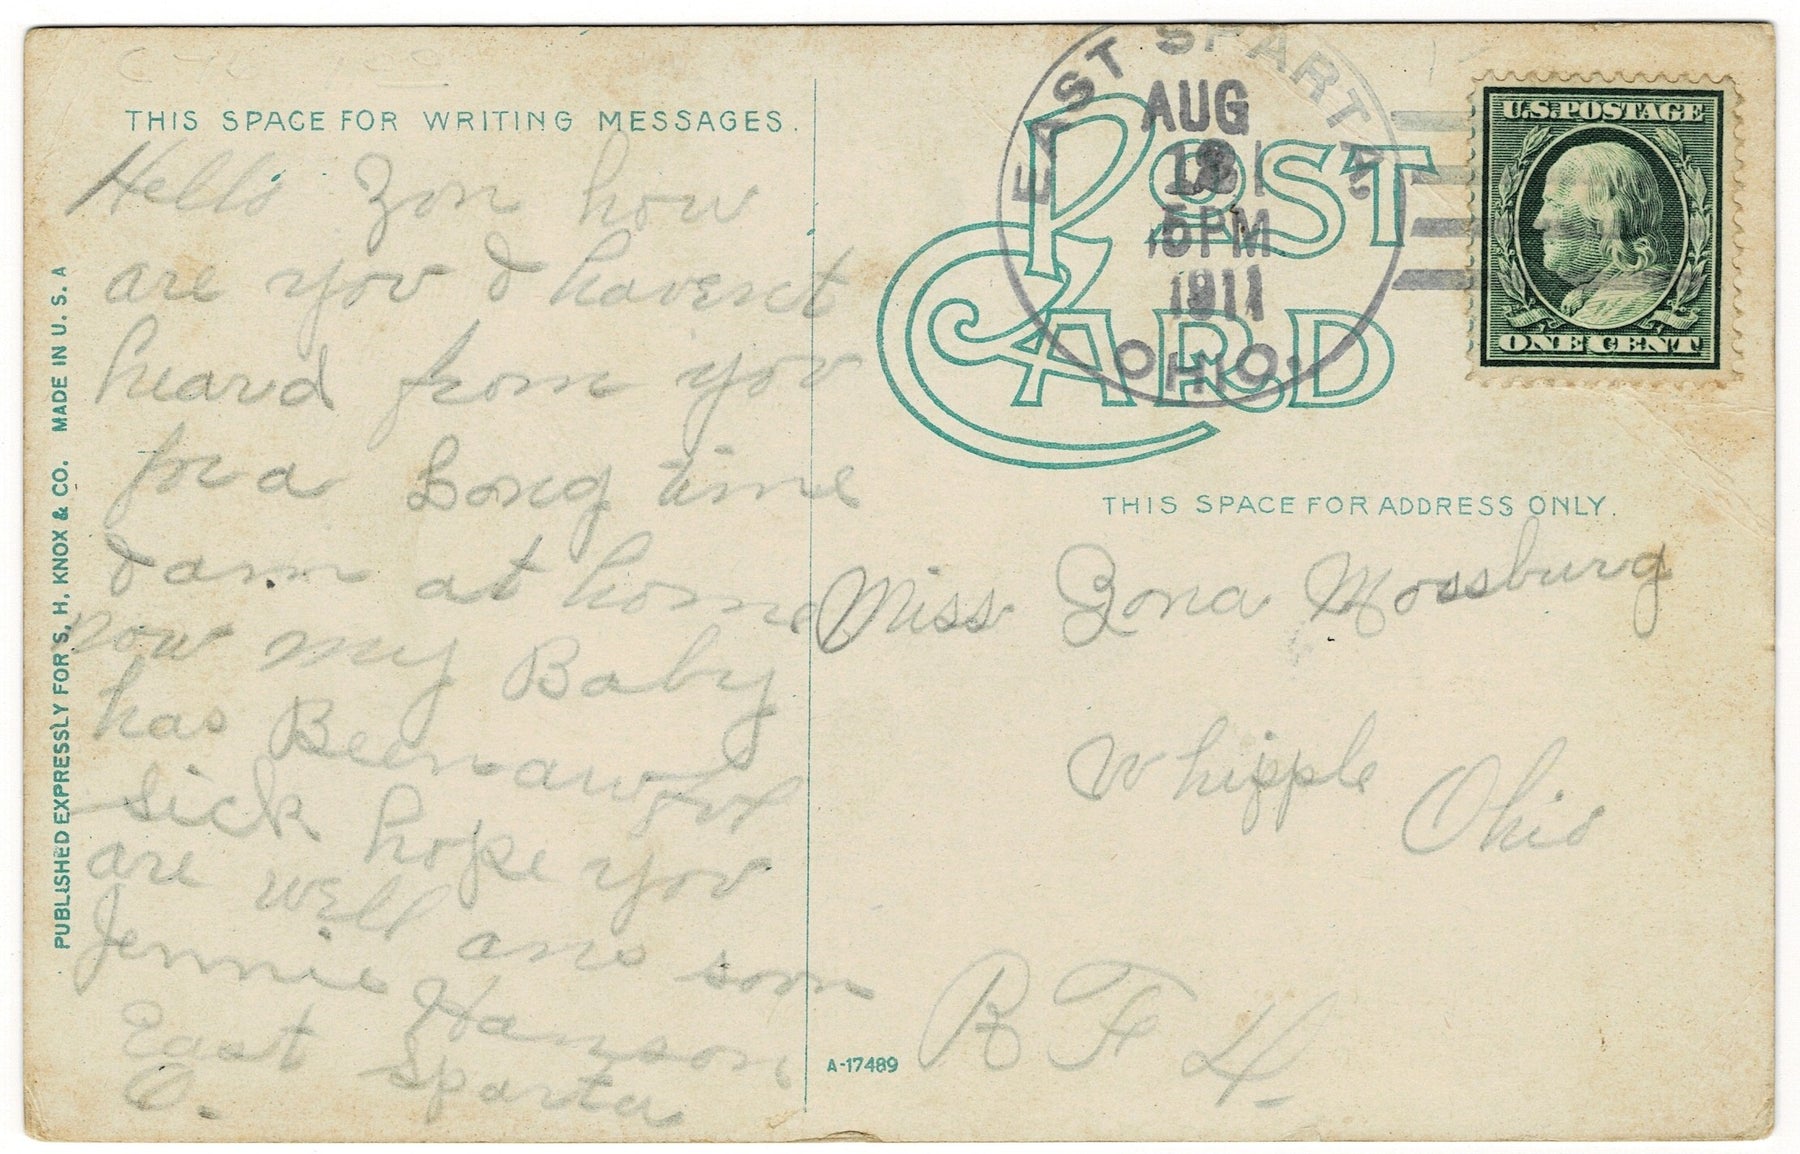 THIS SPACE FOR WRITING MESSAGES.
Hello Zon how
are you I havenct
heard from you
for a Long time
I am at home
now my Baby
has Been awful
sick hope you
are well ans soon
Jennie Hanson
East Sparta
O.
PUBLISHED EXPRESSLY FOR S. H. KNOX & CO. MADE IN U. S. A
EAST SPARTA
AUG
5PM
1911
OHIO
POST
CARD
U.S. POSTAGE
ONE CENT
THIS SPACE FOR ADDRESS ONLY.
Miss Zona Mossburg
Whipple Ohio
R F
A-17489